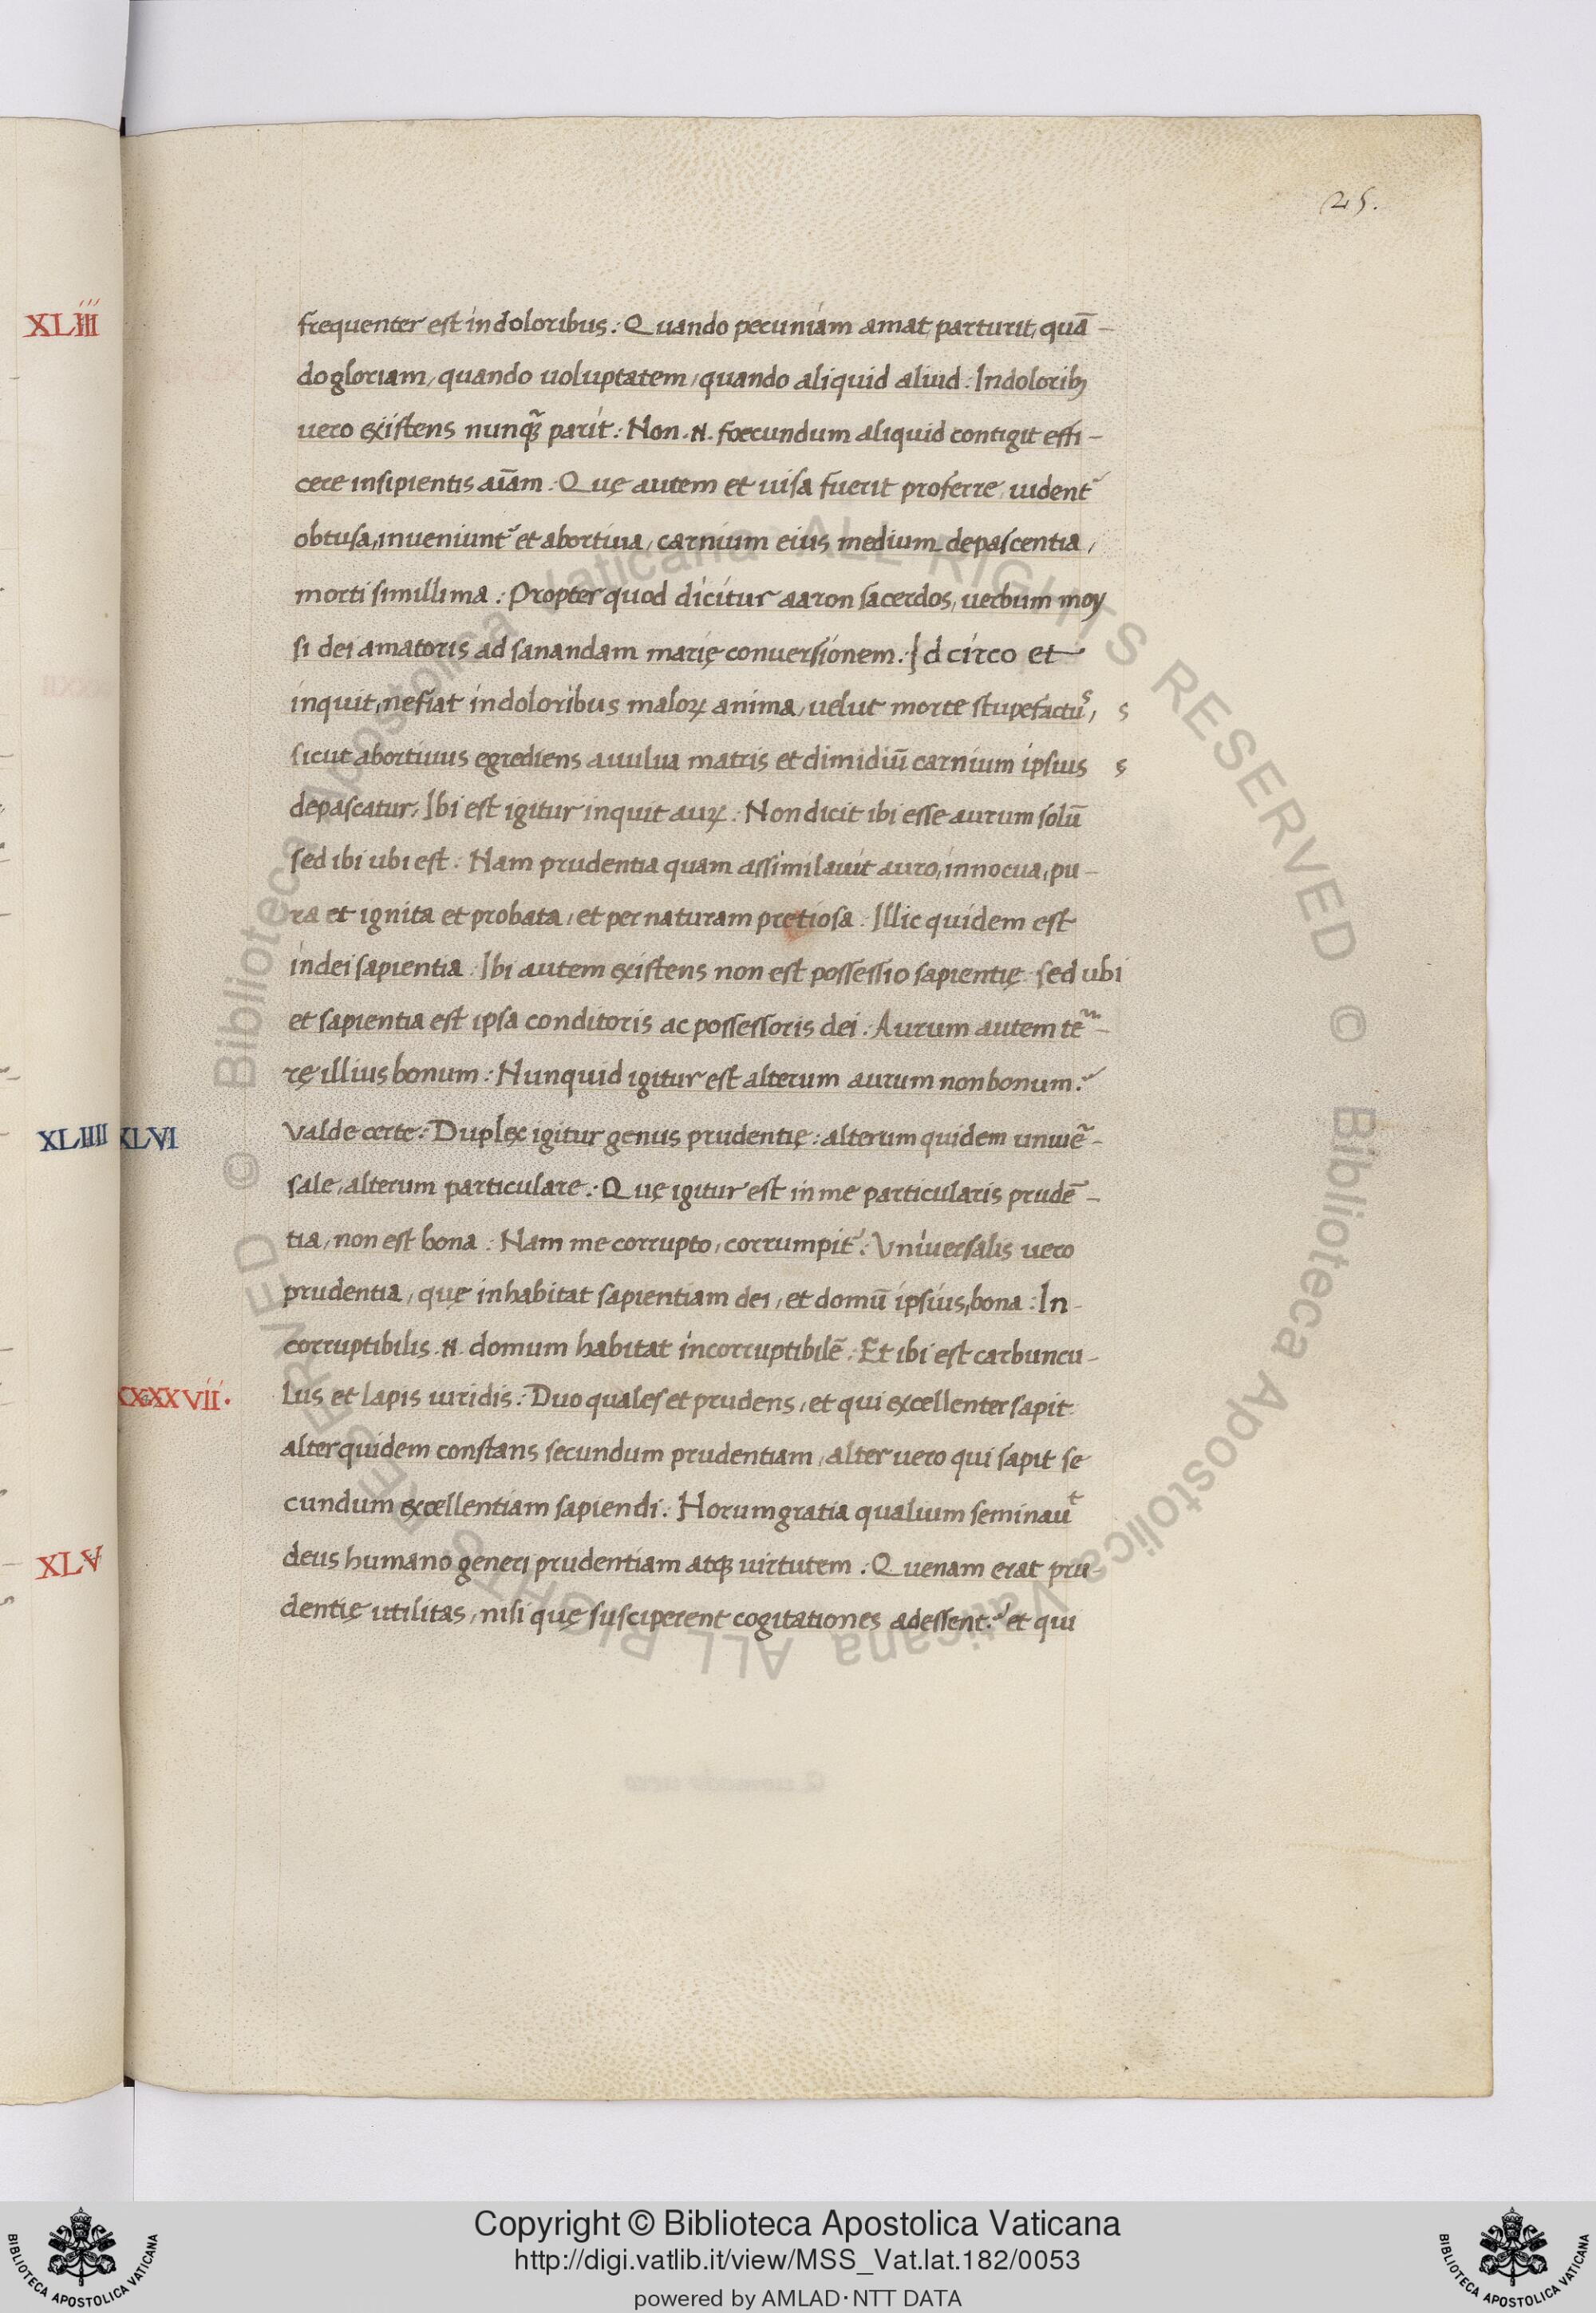 25.
XLIII
frequenter est in doloribus: Quando pecuniam amat, parturit, quā-
do gloriam, quando uoluptatem, quando aliquid aliud: In doloribꝫ
uero existens nunq̃ parit: Non .N. foecundum aliquid contigit effi-
cere insipientis aīam. Quę autem et uisa fuerit proferre, uident᷑
obtusa, inueniunt᷑ et abortiua, carnium eius medium depascentia,
morti simillima: Propter quod dicitur aaron sacerdos, uerbum moy
si dei amatoris ad sanandam marię conuersionem: Id circo et
inquit, ne fiat in doloribus maloꝝ anima, uelut morte stupefactus, s
sicut abortiuus egrediens a uulua matris et dimidiū carnium ipsius s
depascatur, Ibi est igitur inquit auꝝ: Non dicit ibi esse aurum solū
sed ibi ubi est: Nam prudentia quam assimilauit auro, innocua, pu-
ra et ignita et probata, et per naturam pretiosa. Illic quidem est
in dei sapientia. Ibi autem existens non est possessio sapientię sed ubi
et sapientia est ipsa conditoris ac possessoris dei: Aurum autem te᷑-
rę illius bonum: Nunquid igitur est alterum aurum non bonum?
XLIIII XLVI Valde certe: Duplex igitur genus prudentię: alterum quidem uniuē-
sale, alterum particulare: Quę igitur est in me particularis prudē-
tia, non est bona: Nam me corrupto, corrumpit᷑: Vniuersalis uero
prudentia, quę inhabitat sapientiam dei, et domū ipsius, bona: In-
corruptibilis .N. domum habitat incorruptibilē: Et ibi est carbuncu-
XXXXVII. lus et lapis uiridis: Duo quales et prudens, et qui excellenter sapit:
alter quidem constans secundum prudentiam, alter uero qui sapit se
cundum excellentiam sapiendi: Horum gratia qualium seminauᵗ
XLV deus humano generi prudentiam atqꝫ uirtutem: Quenam erat pru-
dentię utilitas, nisi quę susciperent cogitationes adessent? et qui
© Biblioteca Apostolica Vaticana ALL RIGHTS RESERVED © Biblioteca Apostolica Vaticana ALL RIGHTS RESERVED
Copyright © Biblioteca Apostolica Vaticana
http://digi.vatlib.it/view/MSS_Vat.lat.182/0053
powered by AMLAD·NTT DATA
BIBLIOTECA APOSTOLICA VATICANA
BIBLIOTECA APOSTOLICA VATICANA